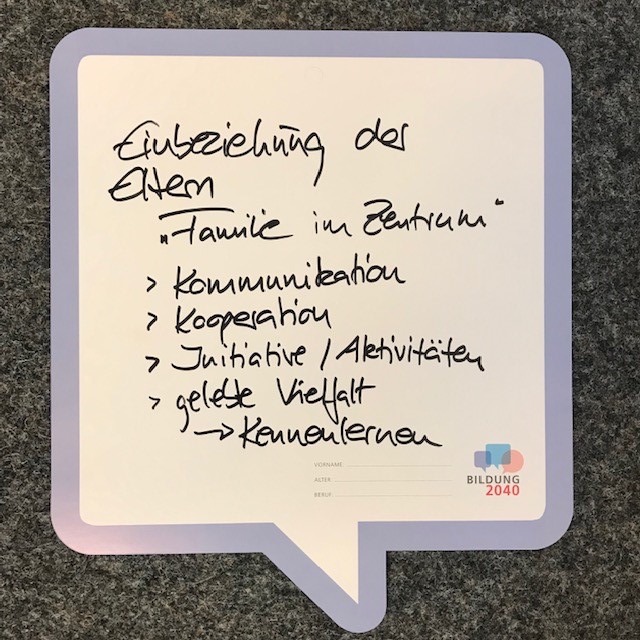 Einbeziehung der
Eltern
„Familie im Zentrum"
> Kommunikation
> Kooperation
> Initiative / Aktivitäten
> gelebte Vielfalt
→ Kennenlernen
VORNAME
ALTER
BERUF
BILDUNG
2040